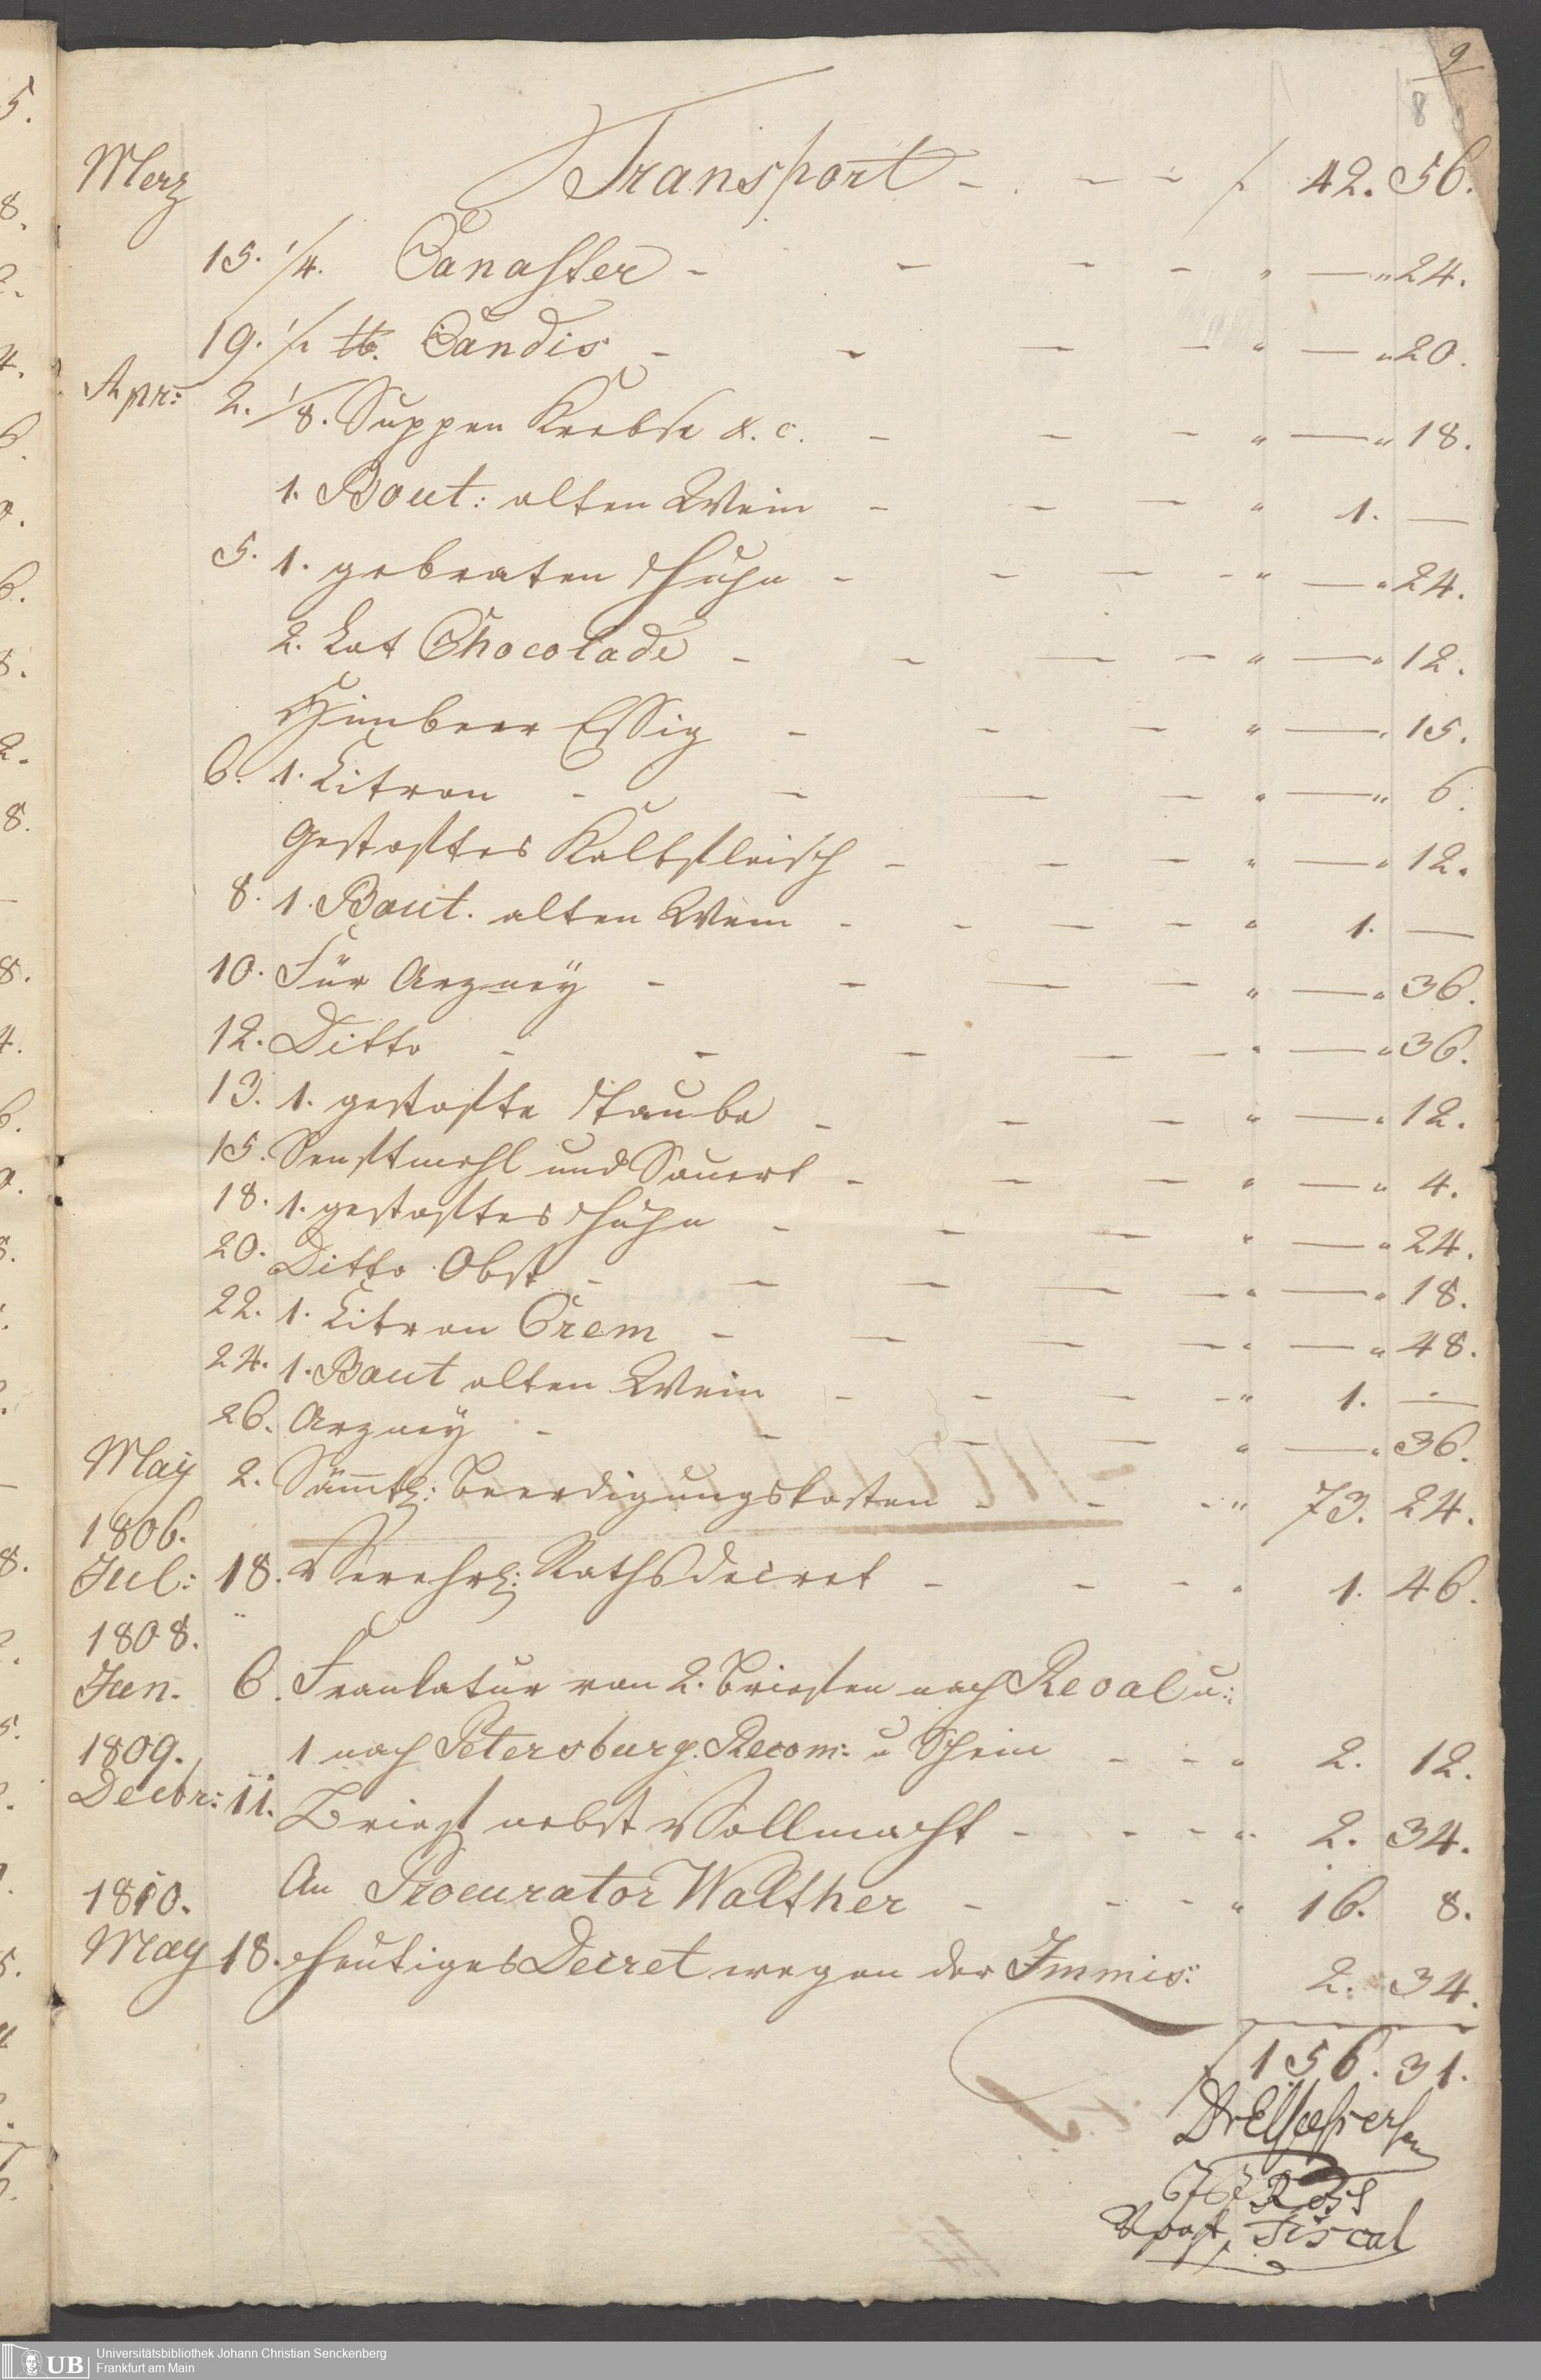 9
8
Merz Transport - - - f 42. 56.
15. 1/4. Canaster - - - - " — " 24.
19. 1/2 tb. Candis - - - - " — " 20.
Apr: 2. 1/8. Suppen Krebse &. c. - - - " — " 18.
1. Bout: alten Wein - - - " 1. —
5. 1. gebraten Huhn - - - - " — " 24.
2. Lot Chocolade - - - - " — " 12.
Himbeer Essig - - - " — " 15.
6. 1. Citron - - - - " — " 6.
Gestoftes Kalbfleisch - - - " — " 12.
8. 1. Bout. alten Wein - - - - " 1. —
10. Für Arzney - - - - " — " 36.
12. Ditto - - - - - " — " 36.
13. 1. gestofte Taube - - - " — " 12.
15. Senftmehl und Sauert - - - " — " 4.
18. 1. gestoftes Huhn - - - " — " 24.
20. Ditto Obst - - - - - " — " 18.
22. 1. Citron Crem - - - - " — " 48.
24. 1. Bout alten Wein - - - - " 1. —
26. Arzney - - - - " — " 36.
May 2. Sämtl: Beerdigungskosten - - - " 73. 24.
1806.
Jul: 18. Verehrl: Raths decret - - - " 1. 46.
1808.
Jun. 6. Frankatur von 2. Briefen nach Reval u:
1809. 1 nach Petersburg. Recom: u Schein - - " 2. 12.
Decbr: 11. Brief nebst Vollmacht - - - " 2. 34.
1810. An Procurator Walther - - - " 16. 8.
May 18. Heutiges Decret wegen der Immis: 2. 34.
f 156. 31.
Fiscal
Universitätsbibliothek Johann Christian Senckenberg
UB Frankfurt am Main